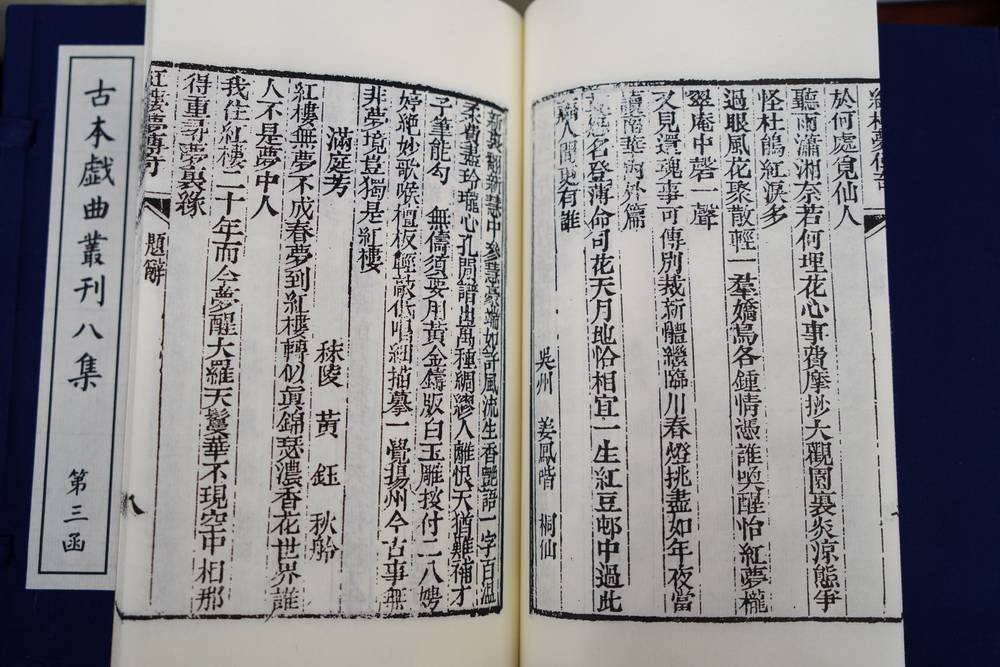 古本戲曲叢刊八集
第三函
於何處覓仙人
聽雨瀟湘奈若何埋花心事費摩抄大觀園裏炎涼態爭
怪杜鵑紅淚多
過眼風花聚散輕一羣嬌鳥各鍾情憑誰喚醒怡紅夢櫳
翠庵中磬一聲
又見還魂事可傳別裁新體繼臨川春燈挑盡如年夜當
讀南華內外篇
名登薄命司花天月地恰相宜一生紅豆邨中過此
病人間更有誰
吳州 姜鳳喈 桐仙
風流生香艷語一字百溫
柔費盡玲瓏心孔閒譜出萬種綢繆人離恨天猶難補才
子筆能勾 無儔須要用黃金鑄版白玉雕投付二八娉
婷絕妙歌喉檀板輕敲低唱細描摹一覺揚州今古事無
非夢境豈獨是紅樓
滿庭芳
秣陵 黃鈺 秋舲
紅樓無夢不成春夢到紅樓轉似眞錦瑟濃香花世界誰
人不是夢中人
我住紅樓二十年而今夢醒大羅天鬘華不現空中相那
得重尋夢裏緣
紅樓夢傳奇 題解 八